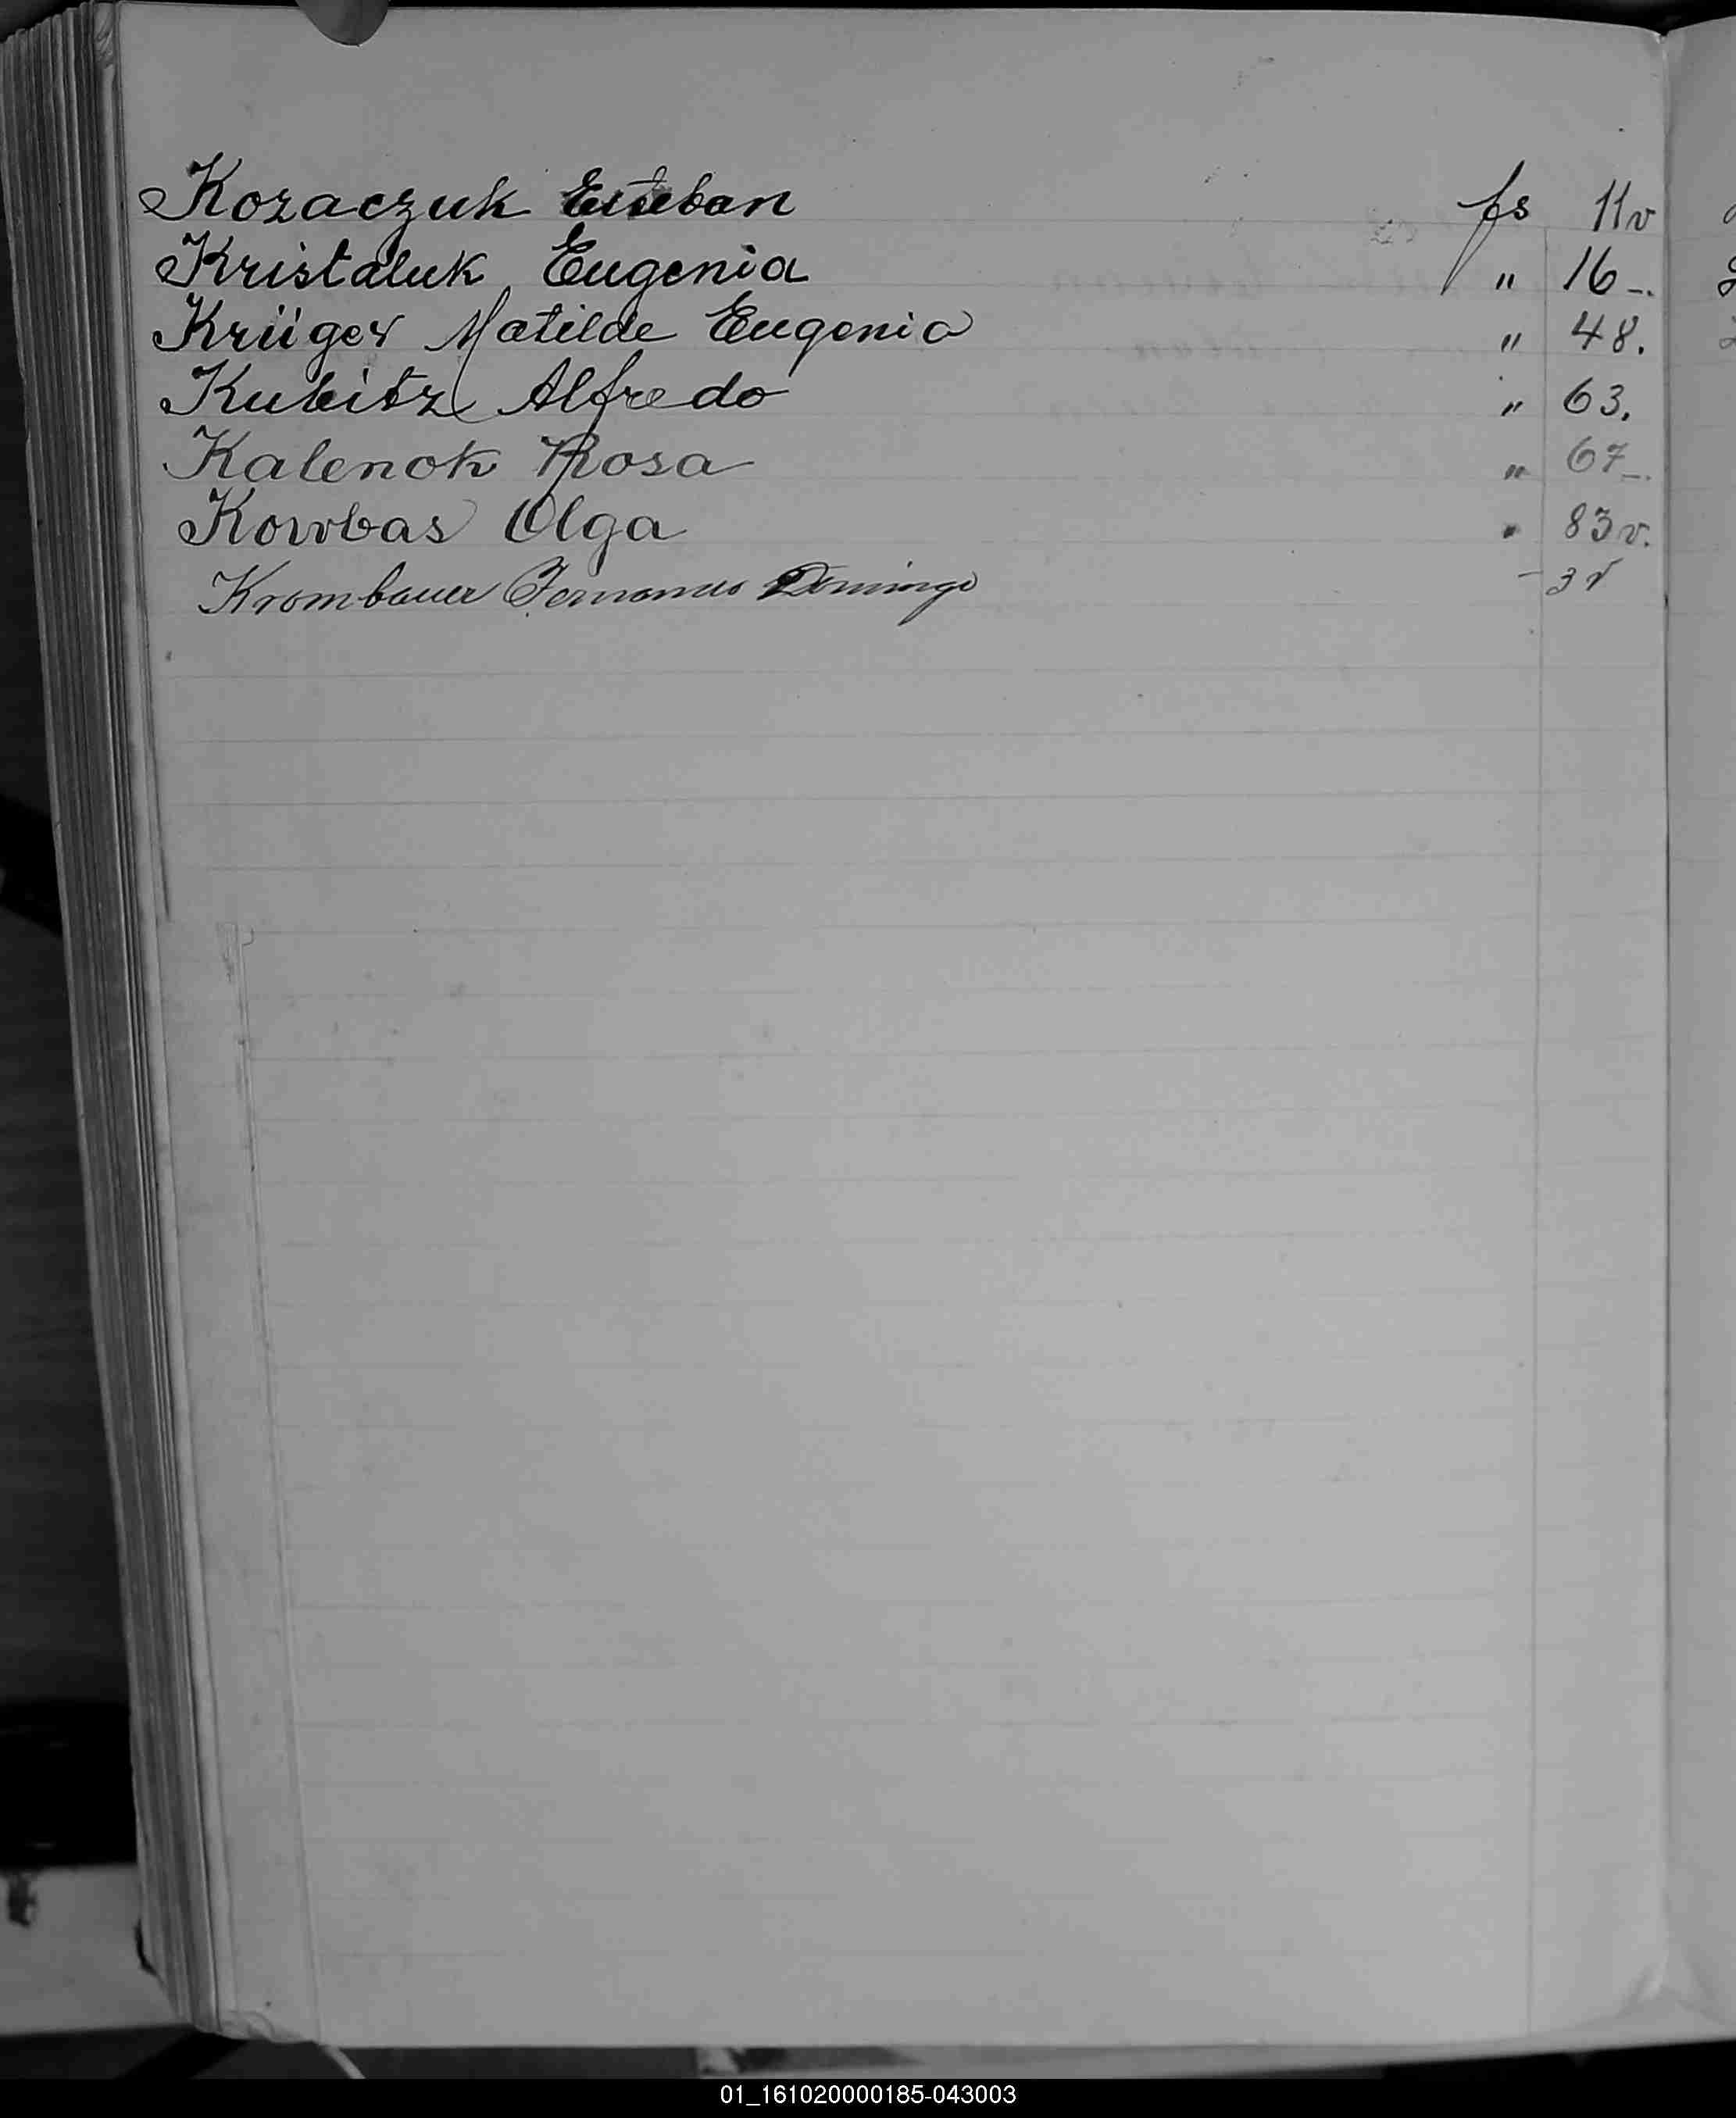 Kozaczuk Esteban fs 11v
Kristaluk Eugenia " 16-.
Krüger Matilde Eugenia " 48.
Kubitz Alfredo " 63.
Kalenok Rosa " 67-.
Kowbas Olga " 83v.
Krombauer Fernando Domingo - 3v
01_161020000185-043003